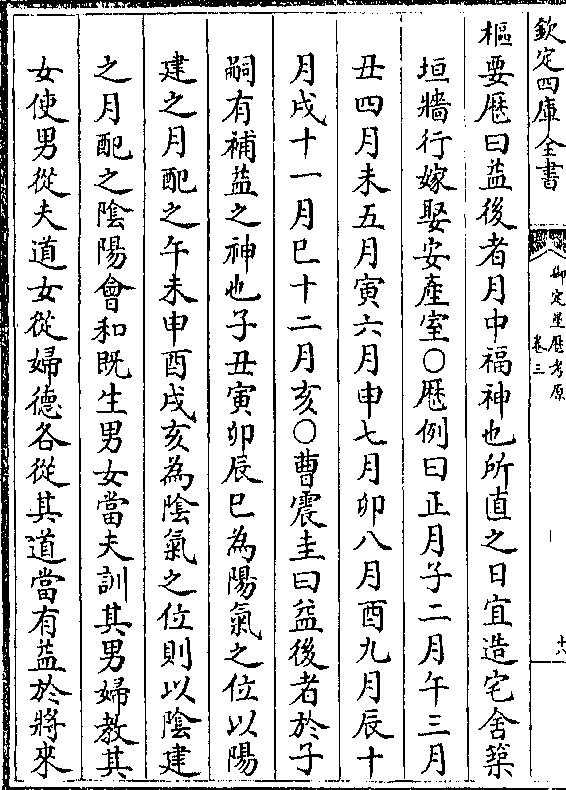 欽定四庫全書
御定星歷考原
卷三
十六
樞要歷曰益後者月中福神也所直之日宜造宅舍築
垣牆行嫁娶安產室○歷例曰正月子二月午三月
丑四月未五月寅六月申七月卯八月酉九月辰十
月戌十一月巳十二月亥○曹震圭曰益後者於子
嗣有補益之神也子丑寅卯辰巳為陽氣之位以陽
建之月配之午未申酉戌亥為陰氣之位則以陰建
之月配之陰陽會和既生男女當夫訓其男婦教其
女使男從夫道女從婦德各從其道當有益於將來